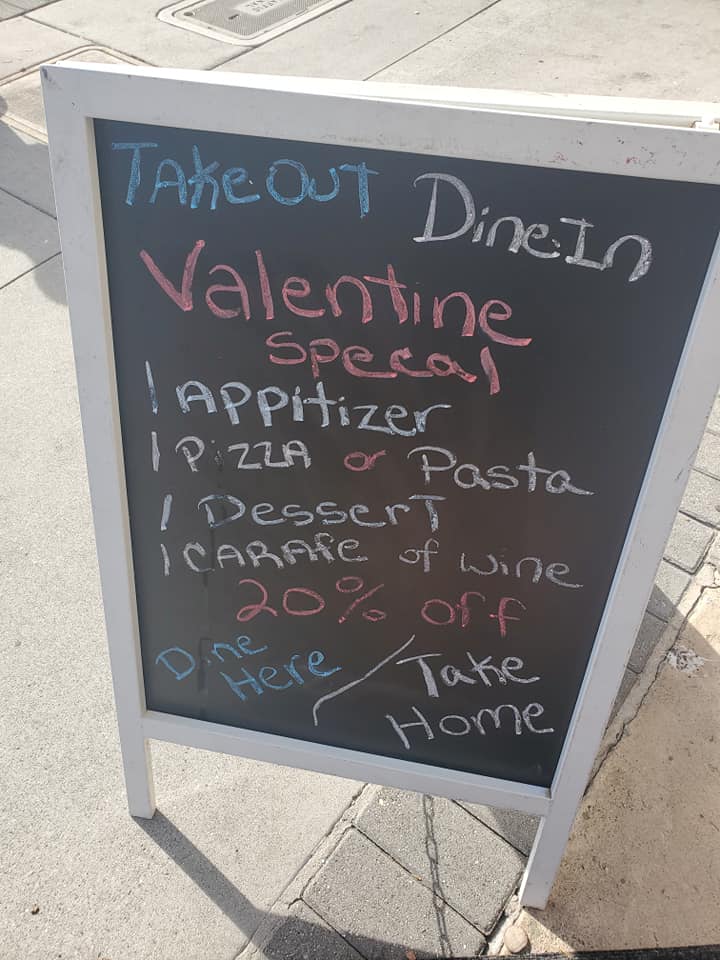 TAKe OUT Dine In
Valentine
specal
1 APPitizer
1 PiZZA or Pasta
1 DesserT
1 CARAfe of wine
20% off
Dine Here / Take Home